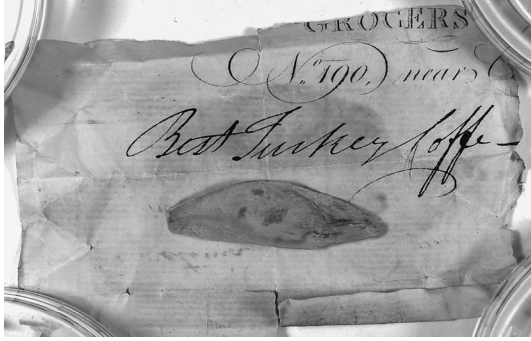 GROCERS
No. 190, near
Best Turkey Coffe